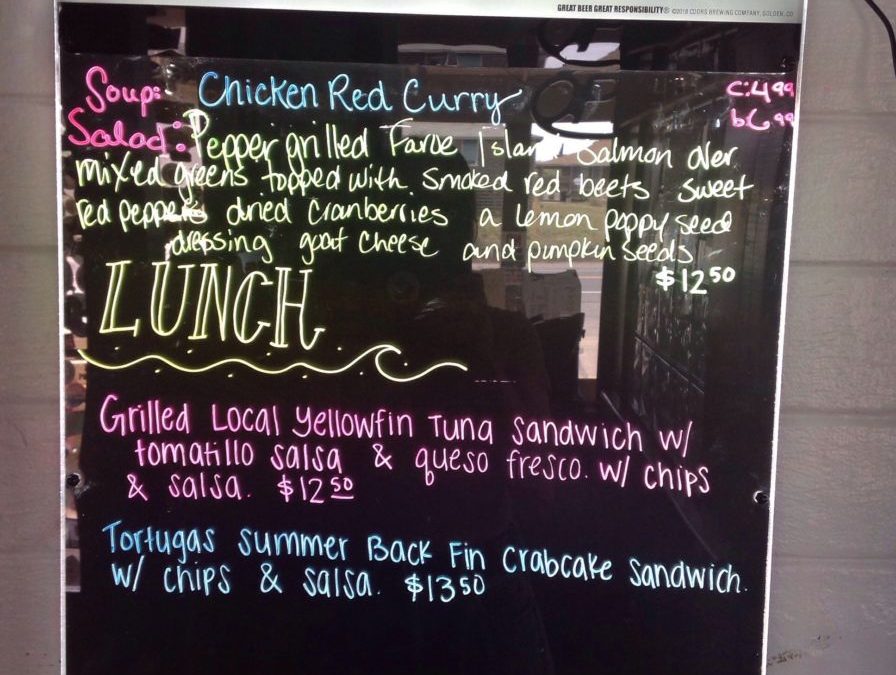 GREAT BEER GREAT RESPONSIBILITY® ©2018 COORS BREWING COMPANY, GOLDEN, CO
Soup: Chicken Red Curry C:4.99
b6.99
Salad: Pepper grilled Faroe Island Salmon over
mixed greens topped with smoked red beets sweet
red peppers dried cranberries a lemon poppy seed
dressing goat cheese and pumpkin seeds
$12.50
LUNCH
Grilled Local Yellowfin Tuna Sandwich w/
tomatillo salsa & queso fresco. w/ chips
& salsa. $12.50
Tortugas Summer Back Fin Crabcake Sandwich.
w/ chips & salsa. $13.50